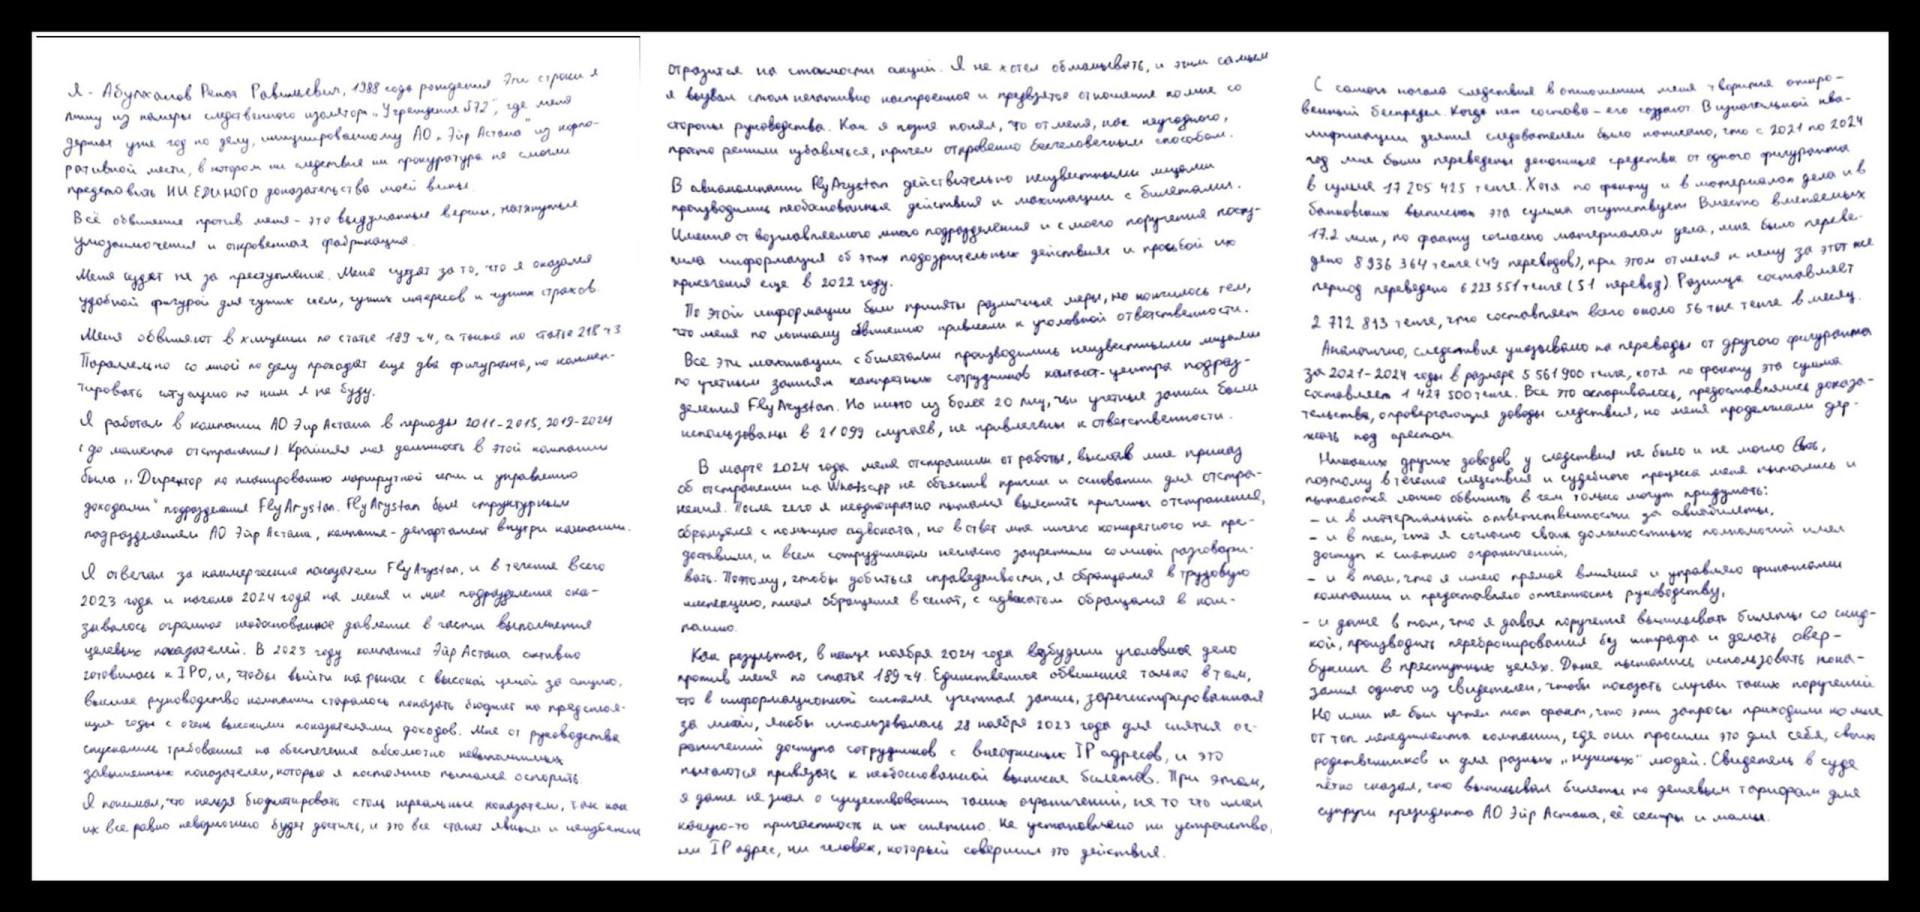 Я - Абулхаиров Ренат Равильевич, 1988 года рождения. Эти строки я
пишу из камеры следственного изолятора "Учреждение №72", где меня
держат уже год по делу, инициированному АО "Эйр Астана" из корпо-
ративной мести, в котором ни следствие ни прокуратура не смогли
предоставить НИ ЕДИНОГО доказательства моей вины.
Всё обвинение против меня - это выдуманные версии, натянутые
умозаключения и откровенная фабрикация.
Меня судят не за преступление. Меня судят за то, что я оказался
удобной фигурой для чужих схем, чужих интересов и чужих страхов.
Меня обвиняют в хищении по статье 189 ч4, а также по статье 218 ч3
Параллельно со мной по делу проходят еще два фигуранта, но коммен-
тировать ситуацию по ним я не буду.
Я работал в компании АО Эйр Астана в периоды 2011-2015, 2019-2024
(до момента отстранения). Крайняя моя должность в этой компании
была "Директор по планированию маршрутной сети и управлению
доходами" подразделения FlyArystan. FlyArystan был структурным
подразделением АО Эйр Астана, компания-департамент внутри компании.
Я отвечал за коммерческие показатели FlyArystan, и в течение всего
2023 года и начала 2024 года на меня и мое подразделение ока-
зывалось огромное необоснованное давление в части выполнения
целевых показателей. В 2023 году компания Эйр Астана активно
готовилась к IPO, и, чтобы выйти на рынок с высокой ценой за акцию,
высшее руководство компании старалось показать бюджет на предстоя-
щие годы с очень высокими показателями доходов. Мне от руководства
спускались требования на обеспечение абсолютно невыполнимых
завышенных показателей, которые я постоянно пытался оспорить.
Я понимал, что нельзя бюджетировать столь нереальные показатели, так как
их все равно невозможно будет достичь, и это все станет явным и неизбежно
отразится на стоимости акций. Я не хотел обманывать, и этим самым
я вызвал столь негативно настроенное и предвзятое отношение ко мне со
стороны руководства. Как я позже понял, что от меня, как неугодного,
просто решили избавиться, причем откровенно бесчеловечным способом.
В авиакомпании FlyArystan действительно неизвестными лицами
производились необоснованные действия и махинации с билетами.
Именно от возглавляемого мною подразделения и с моего поручения посту-
пила информация об этих подозрительных действиях и просьбой их
пресечения еще в 2022 году.
По этой информации были приняты различные меры, но кончилось тем,
что меня по ложному обвинению привлекли к уголовной ответственности.
Все эти махинации с билетами производились неизвестными лицами
по учетным записям конкретных сотрудников контакт-центра подраз-
деления FlyArystan. Но никто из более 20 лиц, чьи учетные записи были
использованы в 21 099 случаев, не привлечены к ответственности.
В марте 2024 года меня отстранили от работы, выслав мне приказ
об отстранении на WhatsApp не объяснив причин и оснований для отстра-
нения. После чего я неоднократно пытался выяснить причины отстранения,
обращался с помощью адвоката, но в ответ мне ничего конкретного не пре-
доставили, и всем сотрудникам негласно запретили со мной разговари-
вать. Поэтому, чтобы добиться справедливости, я обращался в трудовую
инспекцию, писал обращения в сенат, с адвокатом обращался в ком-
панию.
Как результат, в конце ноября 2024 года возбудили уголовное дело
против меня по статье 189 ч4. Единственное обвинение только в том,
что в информационной системе учетная запись, зарегистрированная
за мной, якобы использовалась 28 ноября 2023 года для снятия ог-
раничений доступа сотрудников с внеофисных IP адресов, и это
пытаются привязать к необоснованной выписке билетов. При этом,
я даже не знал о существовании таких ограничений, не то что имел
какую-то причастность к их снятию. Не установлено ни устройство,
ни IP адрес, ни человек, который совершил это действия.
С самого начала следствия в отношении меня творится откро-
венный беспредел. Когда нет состава - его создают. В изначальной ква-
лификации деяния следователем было написано, что с 2021 по 2024
год мне были переведены денежные средства от одного фигуранта
в сумме 17 205 425 тенге. Хотя по факту и в материалах дела и в
банковских выписках эта сумма отсутствует. Вместо вменяемых
17.2 млн, по факту согласно материалам дела, мне было переве-
дено 8 936 364 тенге (49 переводов), при этом от меня к нему за этот же
период переведено 6 223 551 тенге (51 перевод). Разница составляет
2 712 813 тенге, что составляет всего около 56 тыс тенге в месяц.
Аналогично, следствие указывало на переводы от другого фигуранта
за 2021-2024 годы в размере 5 561 900 тенге, хотя по факту эта сумма
составляет 1 427 500 тенге. Все это оспаривалось, предоставлялись доказа-
тельства, опровергающие доводы следствия, но меня продолжали дер-
жать под арестом.
Никаких других доводов у следствия не было и не могло быть,
поэтому в течение следствия и судебного процесса меня пытались и
пытаются ложно обвинить в чем только могут придумать:
- и в материальной ответственности за авиабилеты,
- и в том, что я согласно своих должностных полномочий имел
доступ к снятию ограничений,
- и в том, что я имею прямое влияние и управляю финансами
компании и предоставляю отчетность руководству,
- и даже в том, что я давал поручения выписывать билеты со скид-
кой, производить перебронирования без штрафа и делать овер-
букинг в преступных целях. Даже пытались использовать пока-
зания одного из свидетелей, чтобы показать случаи таких поручений
Но ими не был учтен тот факт, что эти запросы приходили ко мне
от топ менеджмента компании, где они просили это для себя, своих
родственников и для разных "нужных" людей. Свидетель в суде
чётко сказал, что выписывал билеты по дешевым тарифам для
супруги президента АО Эйр Астана, её сестры и мамы.